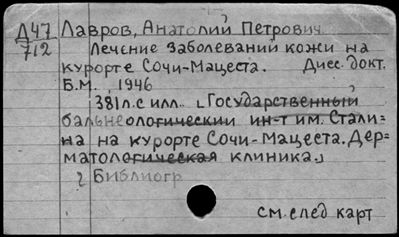 Д47 Лавров, Анатолий Петрович
712 Лечение заболеваний кожи на
курорте Сочи-Мацеста. Дисс. докт.
Б.М., 1946
381л. с илл. [Государственный
бальнеологический ин-т им. Стали=
на на курорте Сочи-Мацеста. Дер=
матологическая клиника.]
Библиогр
См. след карт